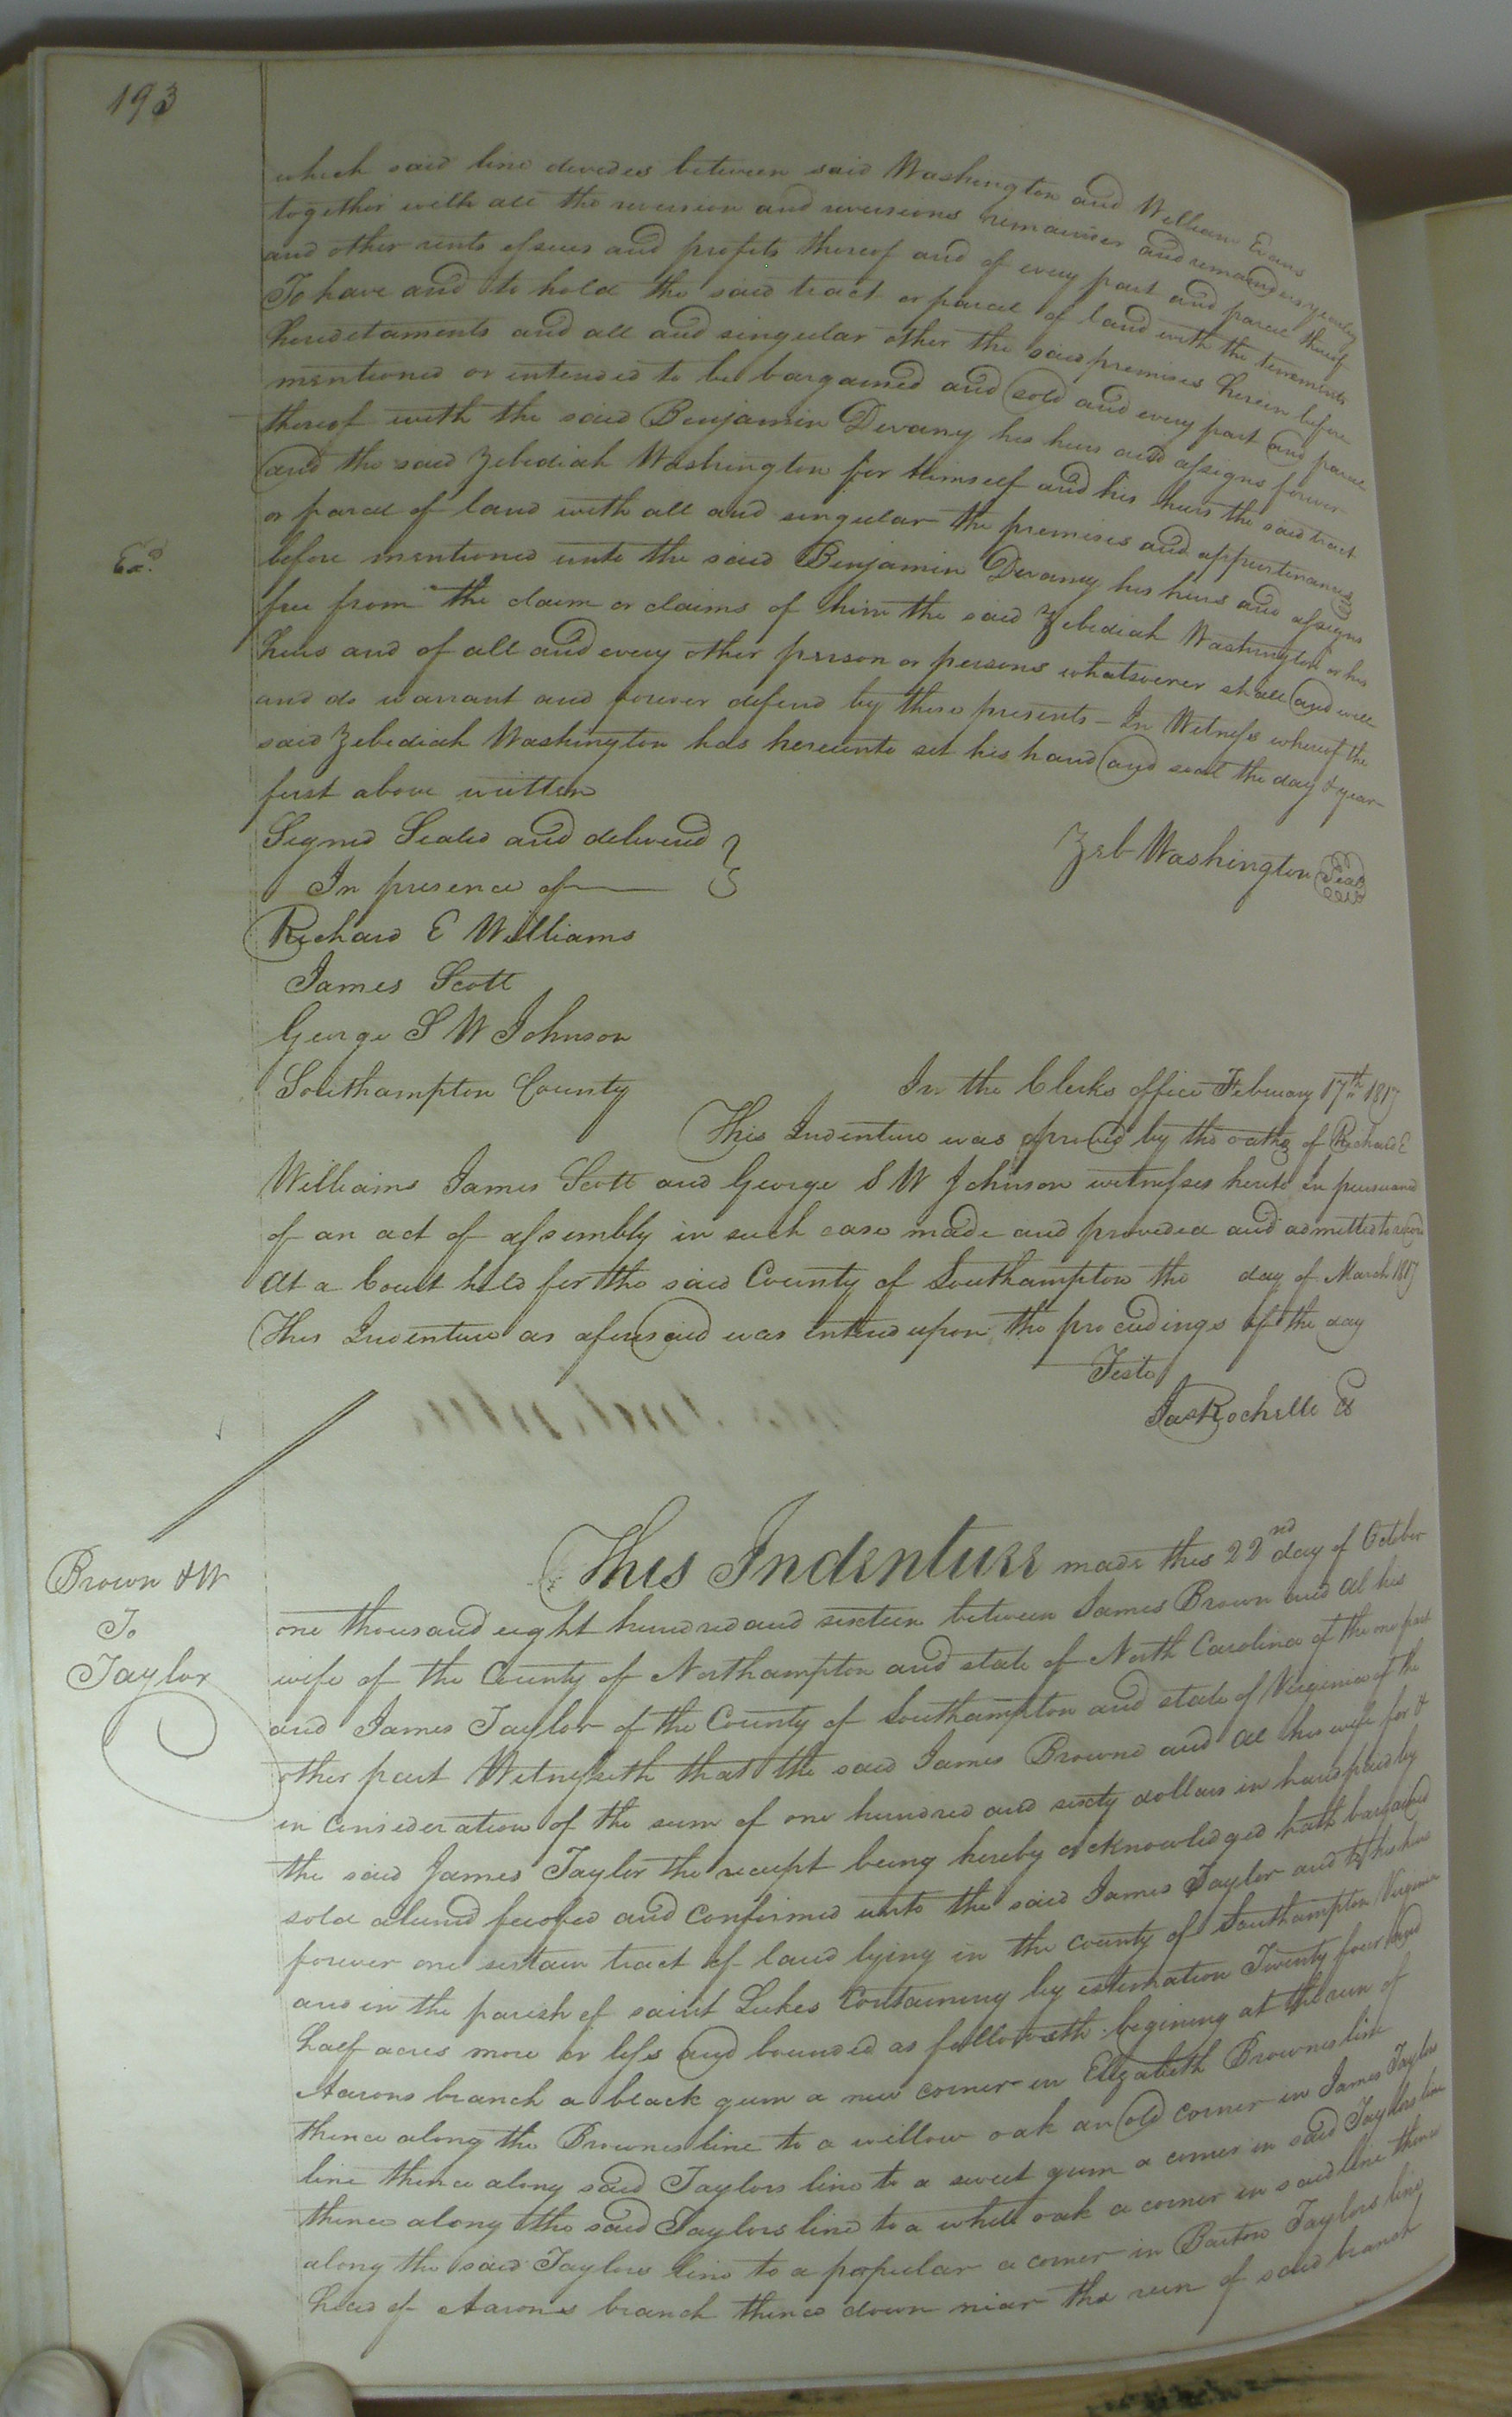 193
which said line devides between said Washington and William Evans
together with all the revercion and revercions remainder and remainders yearly
and other rents essues and profits thereof and of every part and parcel thereof
To have and to hold the said tract or parcel of land with the tenements
hereditaments and all and singular other the said premises herein before
mentioned or intended to be bargained and sold and every part and parcel
thereof with the said Benjamin Devany his heirs and assigns forever
and the said Zebediah Washington for himself and his heirs the said tract
or parcel of land with all and singular the premises and appurtenances
Exd.
before mentioned unto the said Benjamin Devany his heirs and assigns
free from the claim or claims of him the said Zebediah Washington or his
heirs and of all and every other person or persons whatsoever shall and will
and do warrant and forever defend by these presents - In Witness whereof the
said Zebediah Washington has hereunto set his hand and seal the day & year
first above written
Signed Sealed and delivered
In presence of
Zeb Washington Seal
Richard E Williams
James Scott
George S W Johnson
Southampton County
In the Clerks office February 17th 1817
This Indenture was proved by the oaths of Richard E
Williams James Scott and George S W Johnson witnesses hereto In pursuance
of an act of assembly in such case made and provided and admitted to record
At a Court held for the said County of Southampton the day of March 1817
This Indenture as aforesaid was entered upon the procedings of the day
Teste
Jas Rochelle Cs
Brown & W
To
Taylor
This Indenture made this 22nd day of October
one thousand eight hundred and sixteen between James Brown and Al his
wife of the County of Northampton and state of North Carolina of the one part
and James Taylor of the County of Southampton and state of Virginia of the
other part Witnesseth that the said James Browne and Al his wife for &
in consideration of the sum of one hundred and sixty dollars in hand paid by
the said James Taylor the receipt being hereby acknowledged hath bargained
sold aliened feoofed and confirmed unto the said James Taylor and to his heirs
forever one sertain tract of land lying in the county of Southampton Virginia
and in the parish of saint Lukes Containing by estimation Twenty four and
half acres more or less and bounded as followeth begining at the run of
Aarons branch a black gum a new corner in Elizabeth Brownes line
thence along the Brownes line to a willow oak an old corner in James Taylors
line thence along said Taylors line to a sweet gum a corner in said Taylors line
thence along the said Taylors line to a white oak a corner in said line thence
along the said Taylors line to a popular a corner in Barton Taylors line
head of Aarons branch thence down near the run of said branch